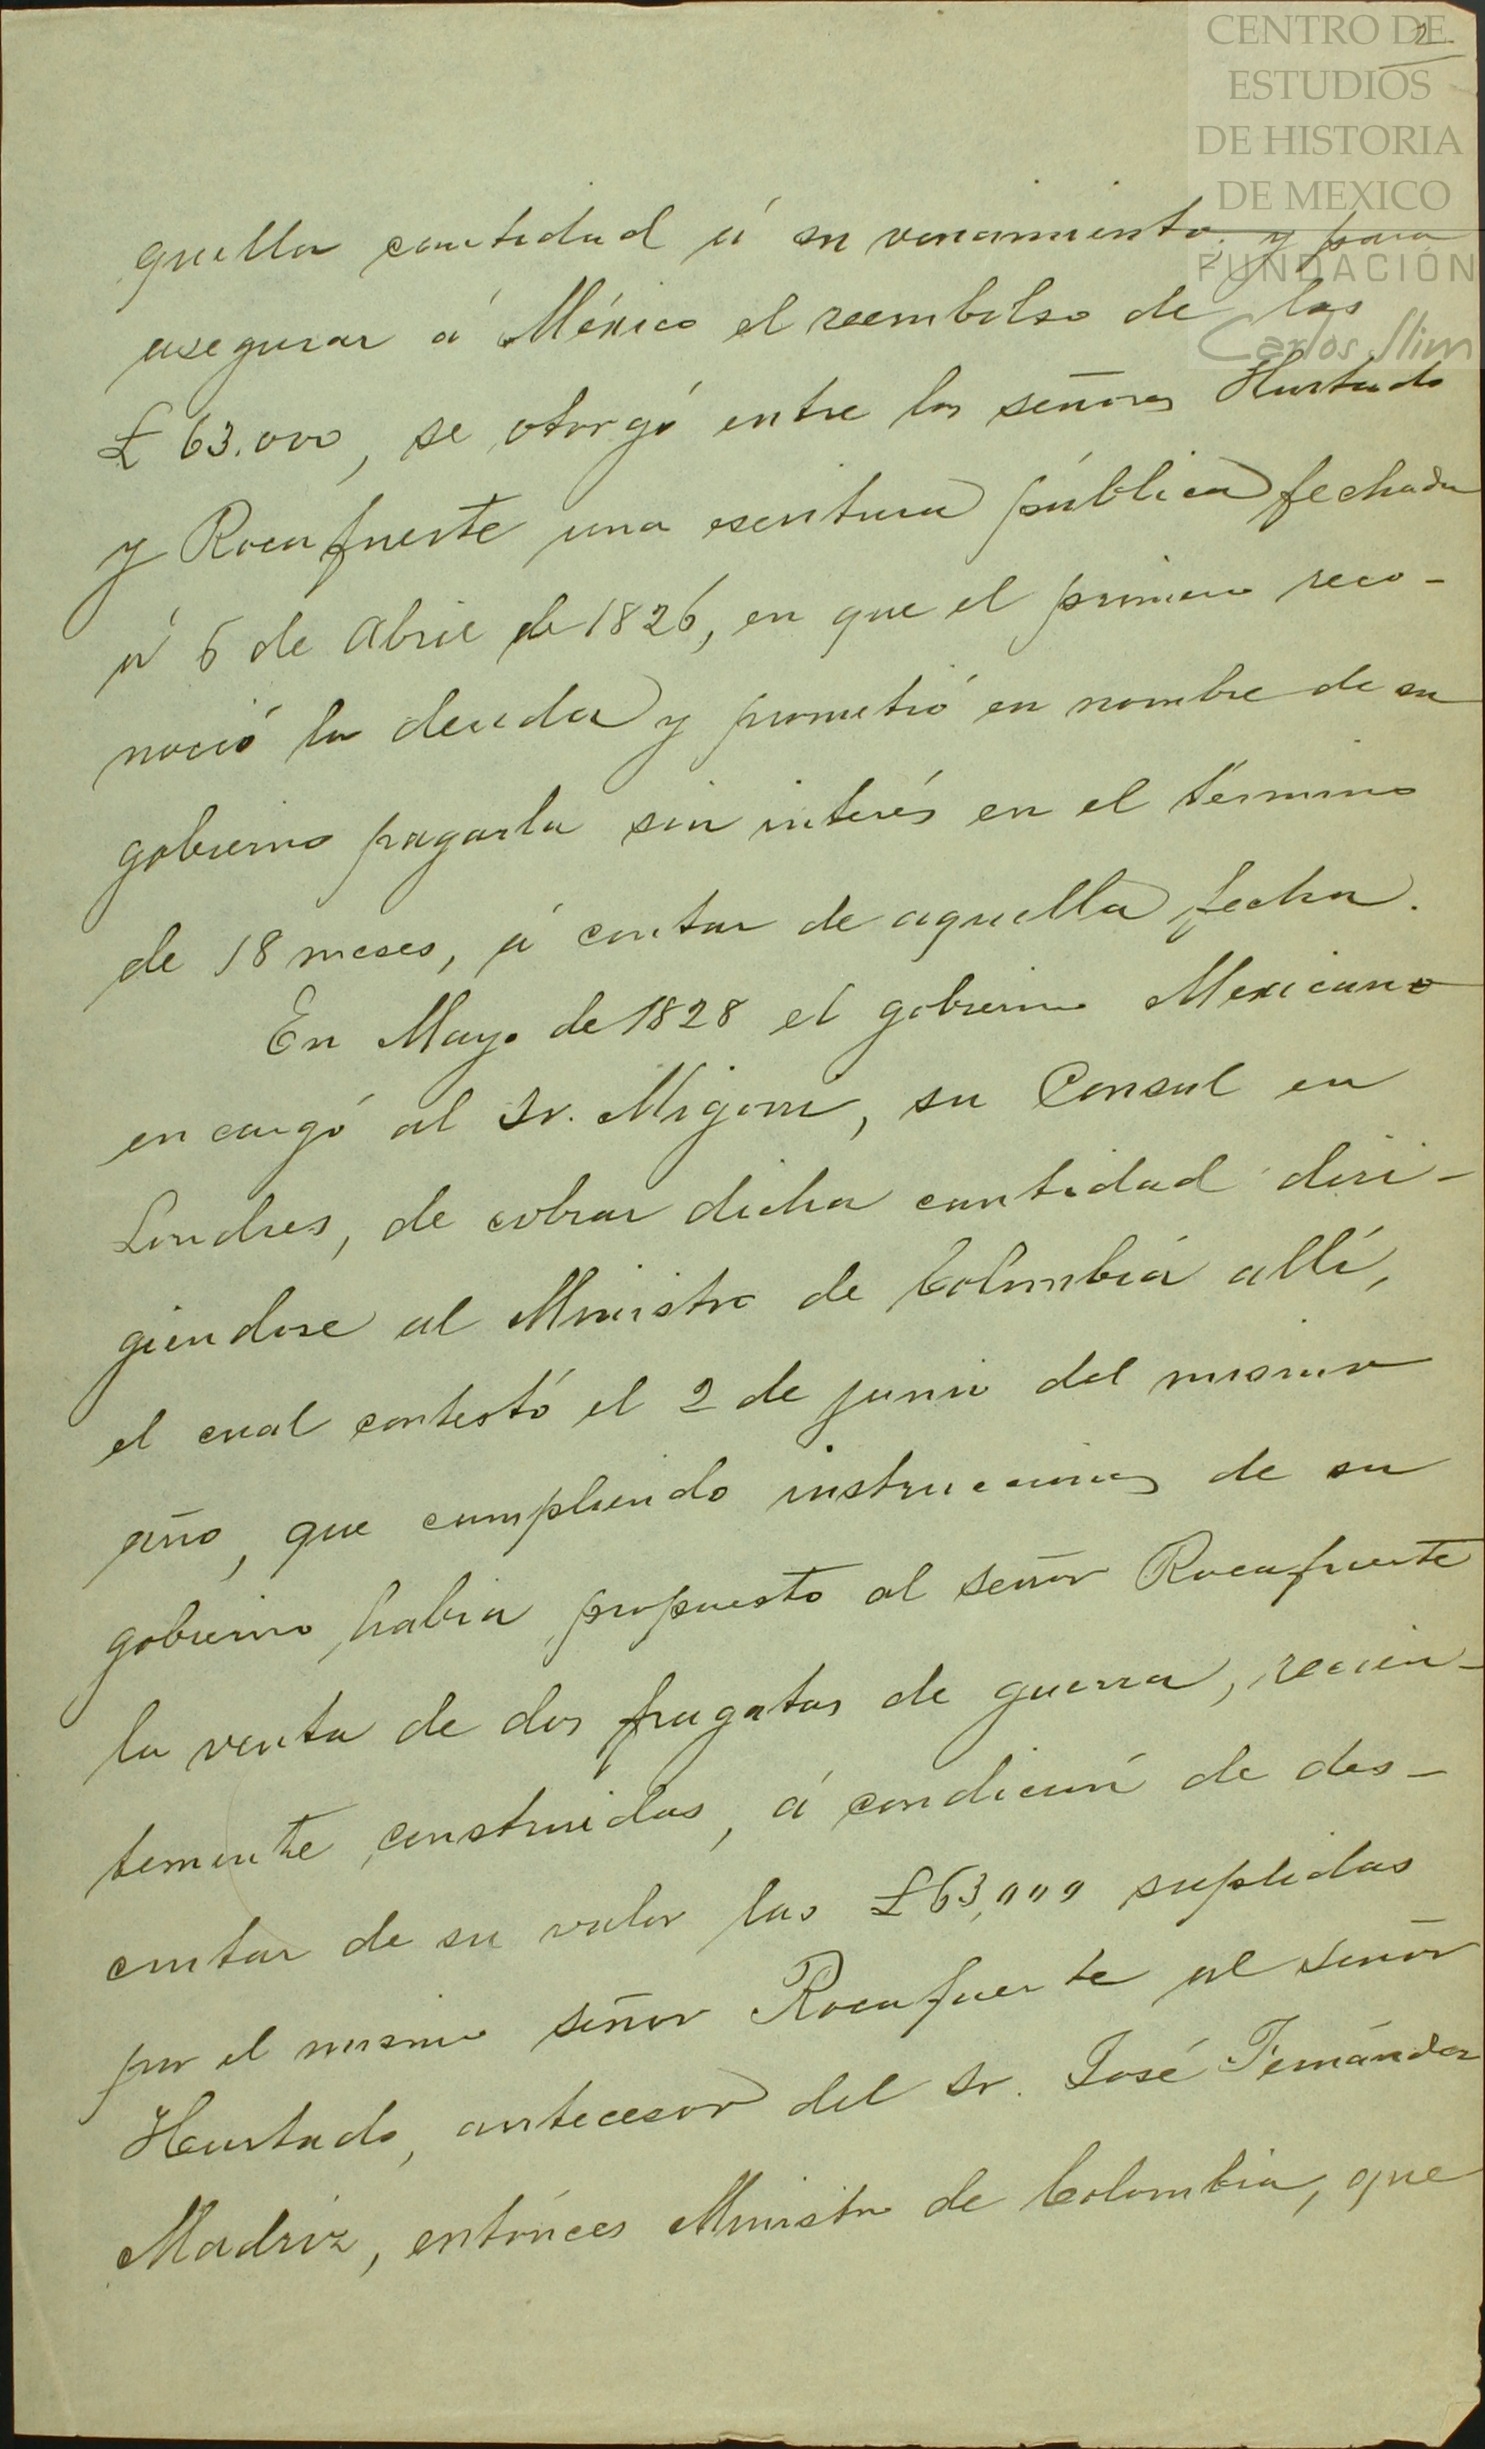 CENTRO DE
ESTUDIOS
DE HISTORIA
DE MEXICO
FUNDACIÓN
Carlos Slim
2
quella cantidad á su vencimiento; y para
asegurar á México el reembolso de las
£ 63.000, se otorgó entre los señores Hurtado
y Rocafuerte una escritura pública fechada
á 6 de Abril de 1826, en que el primero reco-
noció la deuda y prometió en nombre de su
gobierno pagarla sin interés en el término
de 18 meses, á contar de aquella fecha.
En Mayo de 1828 el gobierno Mexicano
encargó al Sr. Migoni, su Consul en
Londres, de cobrar dicha cantidad diri-
giendose al Ministro de Colombia allí,
el cual contestó el 2 de junio del mismo
año, que cumpliendo instrucciones de su
gobierno habia propuesto al señor Rocafuerte
la venta de dos fragatas de guerra, recien-
temente construidas, á condición de des-
contar de su valor las £63,000 suplidas
por el mismo señor Rocafuerte al señor
Hurtado, antecesor del Sr. José Fernández
Madriz, entónces Ministro de Colombia, que